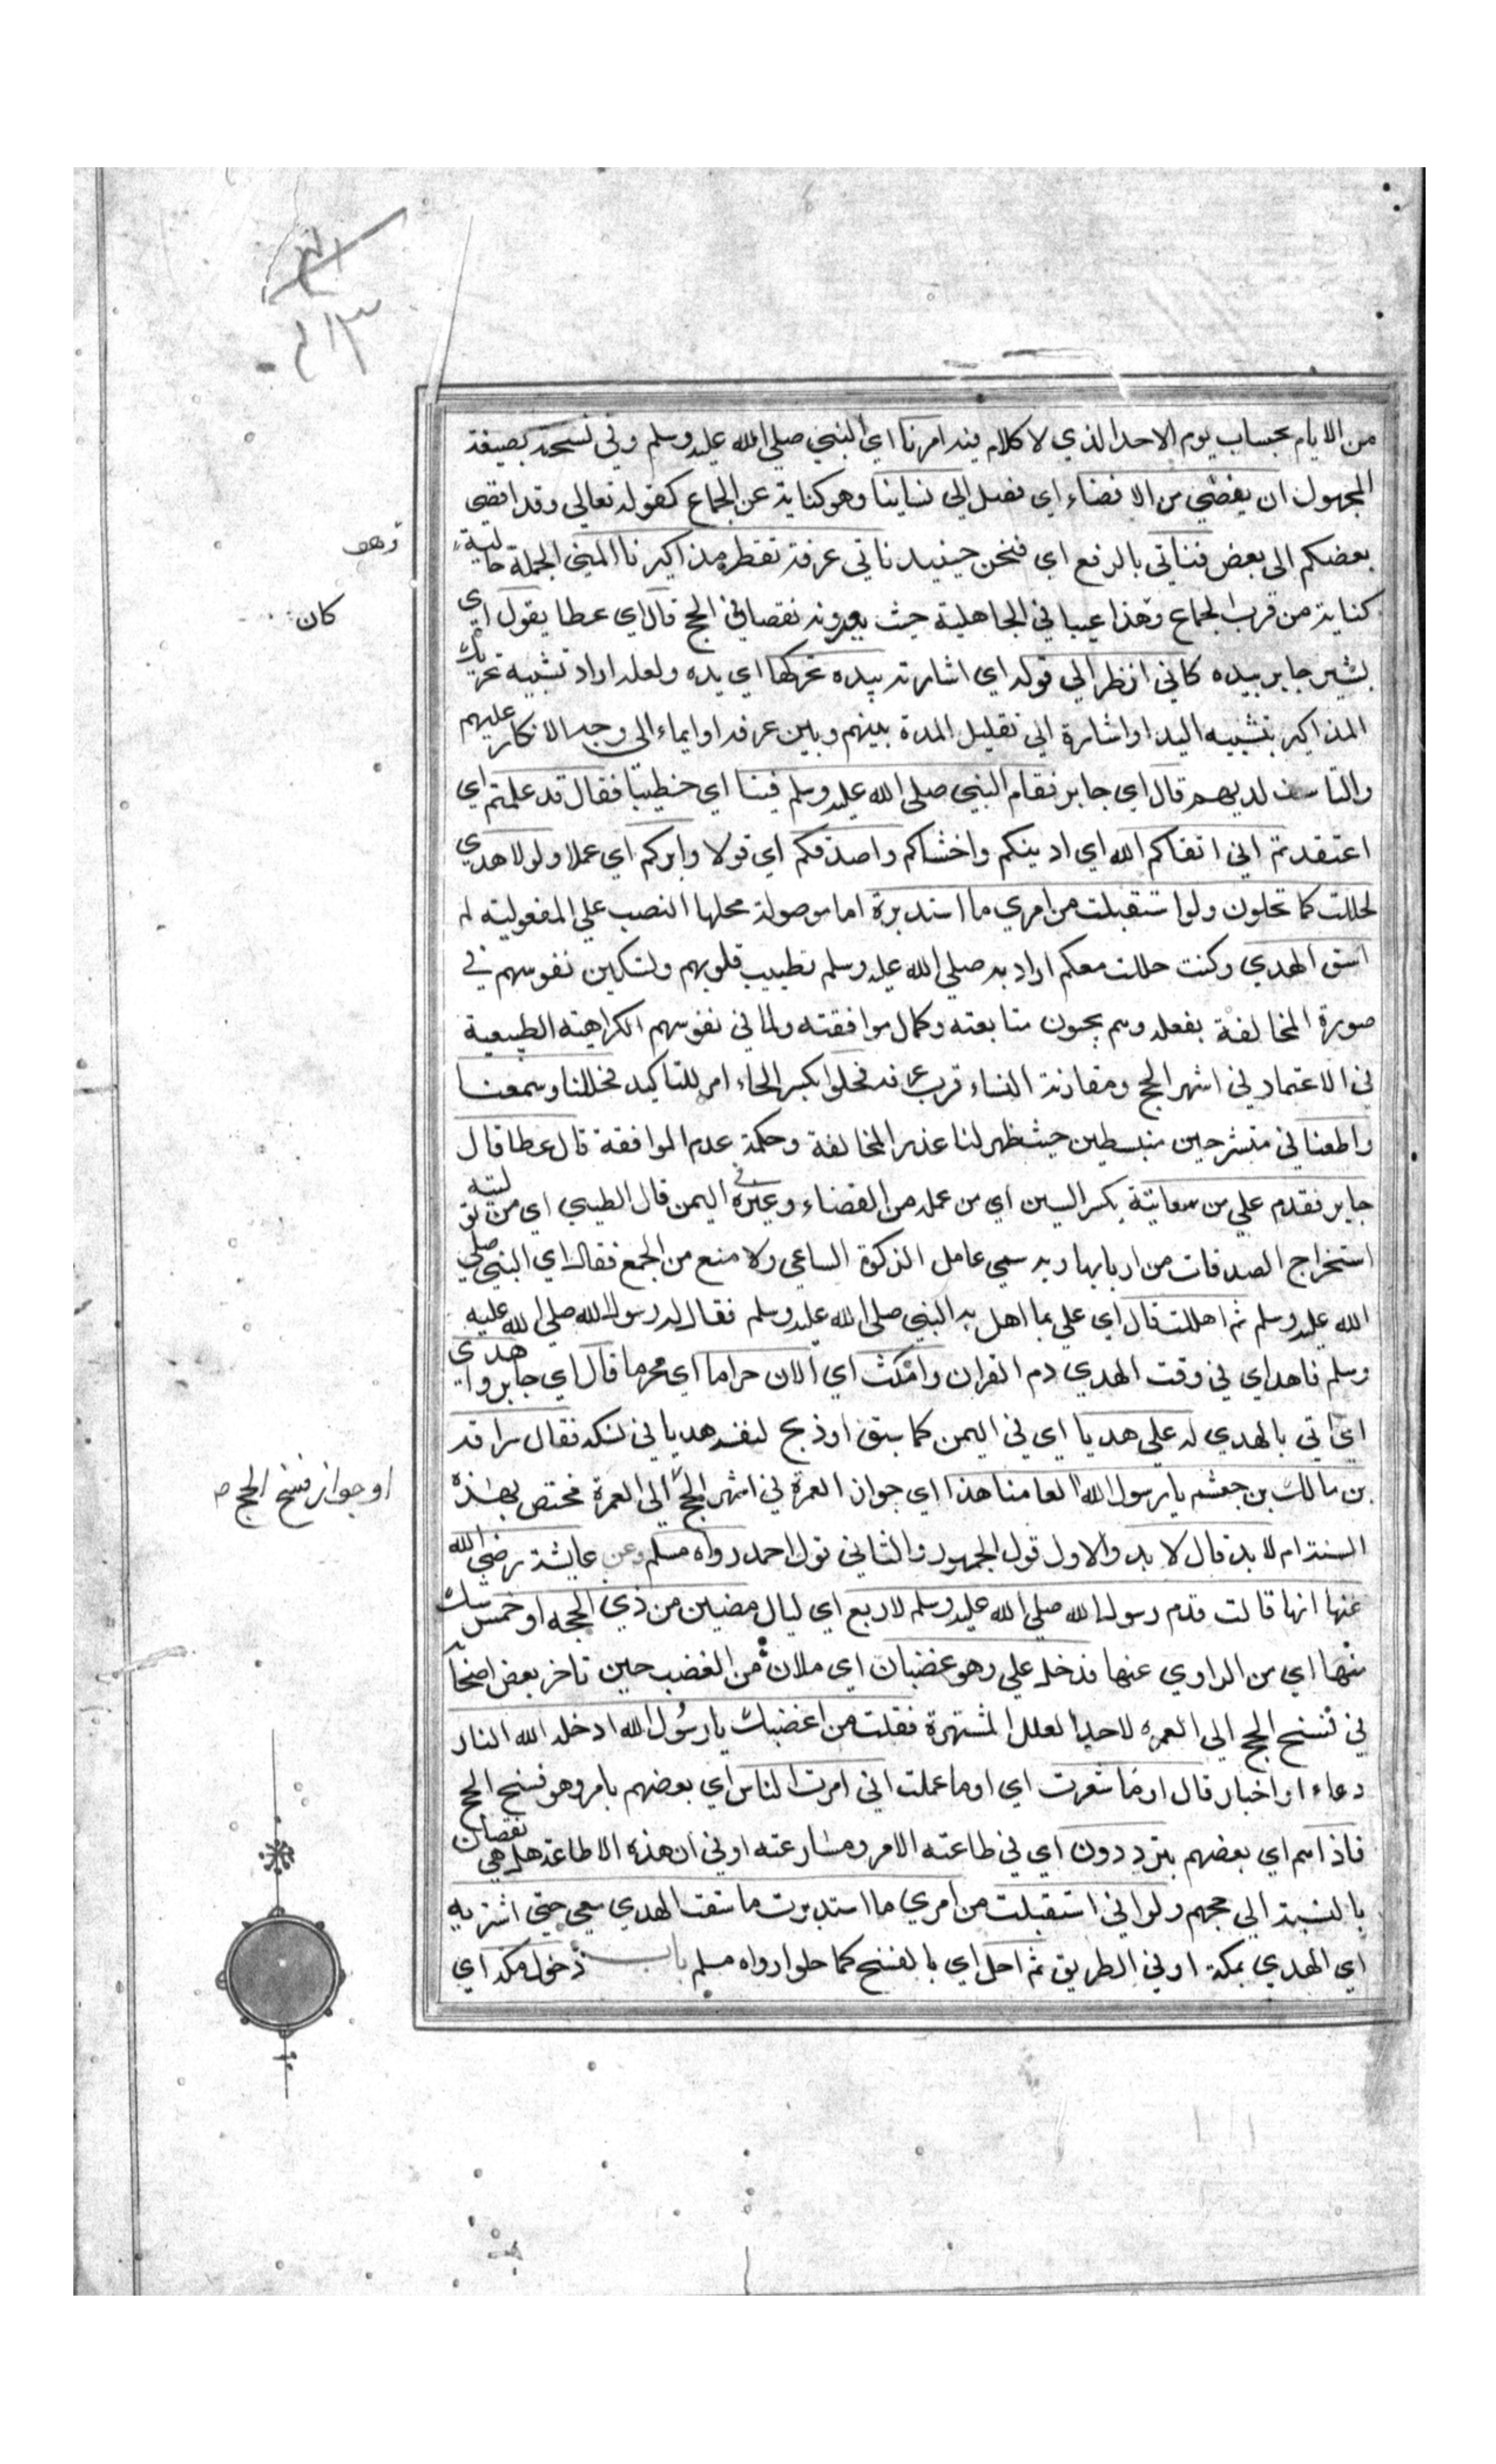 من الايام بحساب يوم الاحد الذي لا كلام فيه امرنا اي النبي صلى الله عليه وسلم وفي نسخة بصيغة
المجهول ان يفضي من الافضاء اي نصل الي نسائنا وهو كناية عن الجماع كقوله تعالي وقد افضى
بعضكم الى بعض فناتي بالرفع اي فنحن حينيذ ناتي عرفة تقطر مذاكيرنا المني الجملة حالية
وهو
كناية من قرب الجماع وهذا عيبا في الجاهلية حيث يعدونه نقصا في الحج قال اي عطا يقول اي
كان
يشير جابر بيده كاني انظر الي قوله اي اشارته بيده يحركها اي يده ولعله اراد تشبيه تحريك
المذاكير بتشبيه اليد او اشارة الي تقليل المدة بينهم وبين عرفه او ايماء الي وجه الانكار عليهم
والتاسف لديهم قال اي جابر فقام النبي صلى الله عليه وسلم فينا اي خطيبا فقال قد علمتم اي
اعتقدتم اني اتقاكم الله اي ادينكم واخشاكم واصدقكم اي قولا وابركم اي عملا ولولا هديي
لحللت كما تحلون ولو استقبلت من امري ما استدبرة اما موصولة محلها النصب علي المفعولية لم
اسق الهدي وكنت حللت معكم اراد به صلي الله عليه وسلم تطييب قلوبهم وتسكين نفوسهم في
صورة المخالفة بفعله وهم يحبون متابعته وكمال موافقته ولما في نفوسهم الكراهية الطبيعية
في الاعتماد في اشهر الحج ومقارنة النساء قرب عرفه فحلوا بكسر الحاء امر للتاكيد فحللنا وسمعنا
واطعنا في منشرحين منبسطين حيث ظهر لنا عذر المخالفة وحكمة عدم الموافقة قال عطا قال
جابر فقدم علي من سعايتة بكسر السين اي من عمله من القضاء وغيره في اليمن قال الطيبي اي من توليته
استخراج الصدقات من اربابها وبه سمي عامل الزكوة الساعي ولا منع من الجمع فقال اي النبي صلي
الله عليه وسلم ثم اهللت قال اي علي بما اهل به النبي صلى الله عليه وسلم فقال له رسول الله صلى الله عليه
وسلم فاهد اي في وقت الهدي دم القران وامكث اي الان حراما اي محرما قال اي جابر واهدي
اي اتي بالهدي له علي هديا اي في اليمن كما سبق او ذبح لنفسه هديا في نسكه فقال سراقة
بن مالك بن جعشم يا رسول الله العامنا هذا اي جواز العمرة في اشهر الحج الى العمرة مختص بهذه
او جواز فسخ الحج
السنة ام لابد قال لا بد والاول قول الجمهور والثاني قول احمد رواه مسلم وعن عايشة رضي الله
عنها انها قالت قدم رسول الله صلي الله عليه وسلم لاربع اي ليال مضين من ذي الحجه او خمس شك
منها اي من الراوي عنها فدخل علي وهو غضبان اي ملان من الغضب حين تاخر بعض اصحا
في فسخ الحج الى العمره لاحد العلل المشتهرة فقلت من اغضبك يا رسول الله ادخله الله النار
دعاء او اخبار قال او ما شعرت اي او ما عملت اني امرت الناس اي بعضهم بامر وهو فسخ الحج
فاذا هم اي بعضهم يترددون اي في طاعته الامر ومسارعته او في ان هذه الاطاعة هل هي نقصان
بالنسبة الي حجهم ولو اني استقبلت من امري ما استدبرت ما سقت الهدي معي حتي اشتريه
اي الهدي بمكة او في الطريق ثم احل اي بالفسخ كما حلوا رواه مسلم باب دخول مكة اي